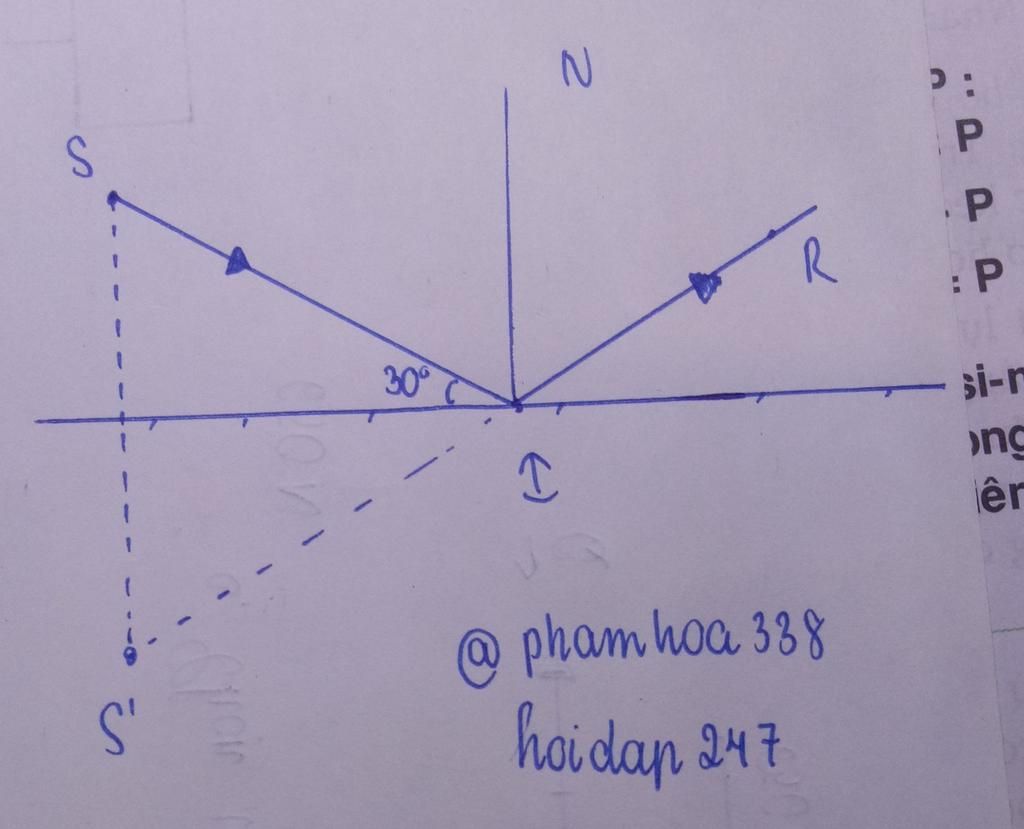 N
S
R
30°
I
S'
@phamhoa 338
hoidap 247
P :
P
P
: P
si-n
ong
iên